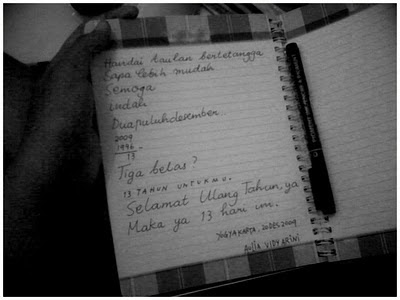 Handai taulan bertetangga
Sapa lebih mudah
Semoga
indah
Duapuluhdesember
2009
1996 -
13
Tiga belas?
13 TAHUN UNTUKMU.
Selamat Ulang Tahun, ya
Maka ya 13 hari ini.
YOGYAKARTA, 20DES2009
AULIA VIDYARINI